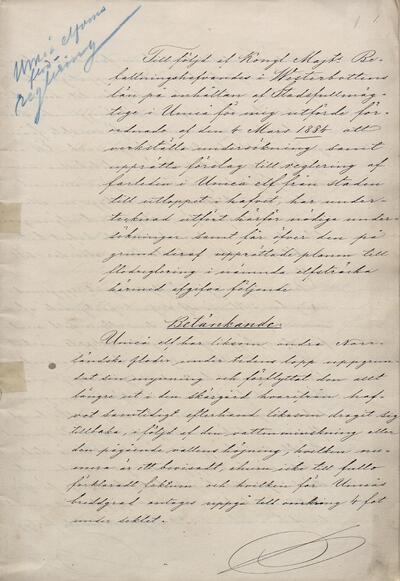 Umeå elfvens
reglering
Till följd af Kongl Majts Be-
fallningshafvandes i Westerbottens
län på anhållan af Stadsfullmäg-
tige i Umeå för mig utförde för-
ordnade af den 4 Mars 1884 att
verkställa undersökning samt
upprätta förslag till reglering af
farleden i Umeå elf från staden
till utloppet i hafvet, har under-
tecknad utfört härför nödige under-
sökningar samt får öfver den på
grund deraf upprättade planen till
flodreglering i nämnda elfsträcka
härmed afgifva följande
Betänkande:
Umeå elf har liksom andra Norr-
ländska floder under tidens lopp uppgrun-
dat sin mynning och förflyttat den allt
längre ut i den skärgård hvarifrån haf-
vet samtidigt efterhand liksom dragit sig
tillbaka, i följd af den vattenminskning eller
den pågående vallens höjning, hvilken nu-
mera är ett bevisadt, ehuru icke till fullo
förklaradt faktum och hvilken för Umeås
breddgrad antages uppgå till omkring 4 fot
under seklet.